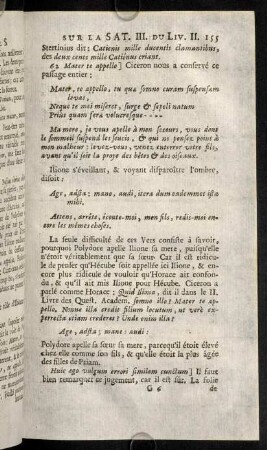 SUR LA SAT. III. DU LIV. II. 155
Stertinius dit: Catienis mille ducentis clamantibus,
des deux cents mille Catienus criant.
62 Mater te appello] Ciceron nous a conservé ce
passage entier;
Mater, te appello, tu qua somno curam suspensam
levas,
Neque te mei miseret, surge & sepeli natum
Prius quam feræ volucresque - - - -
Ma mere, je vous apelle à mon secours, vous dans
le sommeil suspend les soucis, & qui ne pensez point à
mon malheur; levez-vous, venez enterrer votre fils,
avant qu'il soit la proye des bêtes & des oiseaux.
Ilione s'éveillant, & voyant disparoître l'ombre,
disoit;
Age, adsta: mane, audi, itera dum eademmet ista
mihi.
Attens, arrête, écoute-moi, mon fils, redis-moi en-
core les mêmes choses.
La seule difficulté de ces Vers consiste à savoir,
pourquoi Polydore apelle Ilione sa mere, puisqu'elle
n'étoit véritablement que sa sœur. Car il est ridi-
cule de penser qu'Hécube soit apellée ici Ilione, &
encore plus ridicule de vouloir qu'Horace ait confon-
du, & qu'il ait mis Ilione pour Hécube. Ciceron a
parlé comme Horace; Quid Ilione, dit-il dans le II.
Livre des Quest. Academ, somno illo? Mater te ap-
pello, Nonne illa credit filium locutum, ut verè ex-
perrecta etiam crederet? Unde enim illa?
Age, adsta; mane; audi:
Polydore apelle sa sœur sa mere, parcequ'il étoit élevé
chez elle comme son fils, & qu'elle étoit la plus âgée
des filles de Priam.
Huic ego vulgum errori similem cunctum] Il faut
bien remarquer ce jugement, car il est sûr. La folie
G 6 de